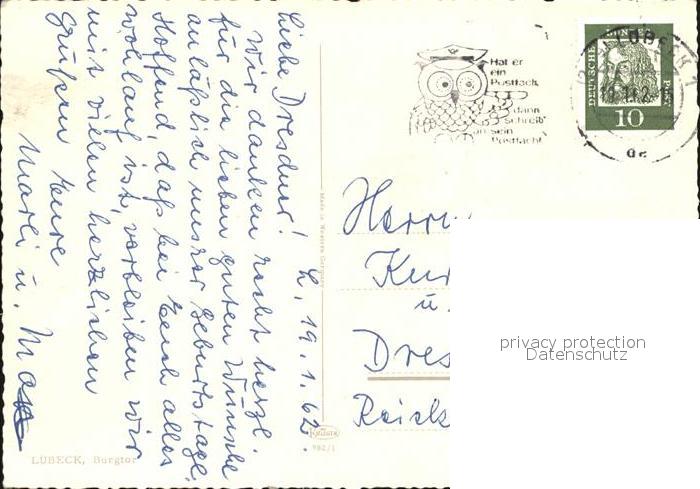 L., 19.1.62.
Liebe Dresdner!
Wir danken recht herzl.
für die lieben guten Wünsche
anläßlich unsrer Geburtstage.
Hoffend, daß bei Euch alles
wohlauf ist, verbleiben wir
mit vielen herzlichen
Grüßen Eure
Marli u. Max
LÜBECK, Burgtor
Made in Western Germany
982/1
Hat er
ein
Postfach,
dann
schreib'
an sein
Postfach!
LÜBECK
DEUTSCHE BUNDESPOST
10
Herrn
u.
privacy protection
Datenschutz